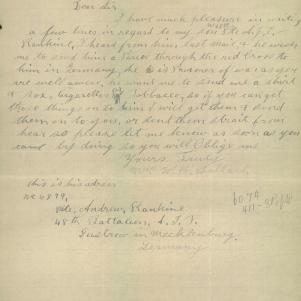 Dear Sir
I have much pleasure in writing
a few lines in regard to my son Pte A. J.
Rankine, I heard from him last mail, & he wants
me to send him a Parcel through the red Cross to
him in Germany, he is Prisoner of war as you
are well aware, he want me to send out a shirt
& Sox, Cigarettes & Tobacco, so if you can get
those things on to him I will get them & send
them on to you, or send them strait from
hear so please let me know as soon as you
can by doing so you will Oblige me
Yours Truly
Mrs W. H. Ballard
this is his adress
No 4899,
Pte, Andrew Rankine
48th Battalion, A. I. F.
Gustrow in Mecklenburg
Germany